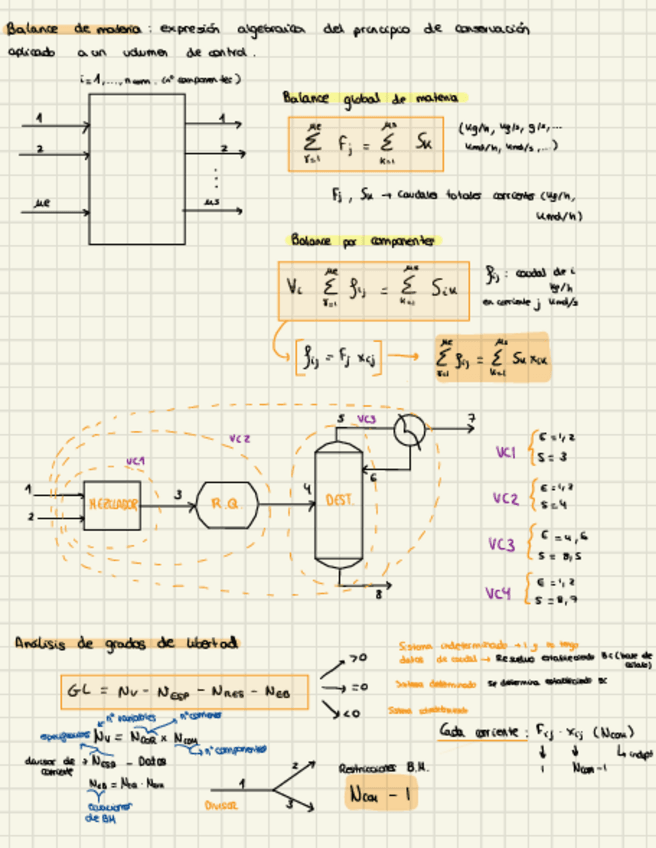 Balance de materia: expresión algebraica del principio de conservación
aplicado a un volumen de control.
i=1,...,ncom. (nº componentes)
1
2
μe
1
2
μs
Balance global de materia
μe Σ r=1 Fj = μs Σ k=1 Sk
(kg/h, kg/s, g/s,...
kmol/h, kmol/s,...)
Fj, Sk → caudales totales corriente (kg/h,
kmol/h)
Balance por componentes
Vi μe Σ r=1 fij = μs Σ k=1 Sik
fij: caudal de i
kg/h
en corriente j kmol/s
[fij = Fj xij] → μe Σ r=1 fij = μs Σ k=1 Sk xik
VC1
VC2
VC3
1
2
MEZCLADOR
3
R.Q.
4
DEST.
5
6
7
8
VC1 { E=1,2
S=3
VC2 { E=1,2
S=4
VC3 { E=4,6
S=8,5
VC4 { E=1,2
S=8,7
Análisis de grados de libertad
GL = Nv - NESP - NRES - NEB
>0
=0
<0
Sistema indeterminado → si no tengo
datos de caudal → Resuelvo estableciendo BC (base de
Sistema determinado Se determina estableciendo BC
Sistema
nº variables
nº corrientes
Nv = NCOR x NCOM
nº componentes
divisor de
corriente → NESP - Datos
ecuaciones
de BM
DIVISOR
1
2
3
Restricciones B.M.
NCOM - 1
Cada corriente: Fij · xij (NCOM)
1
NCOM-1